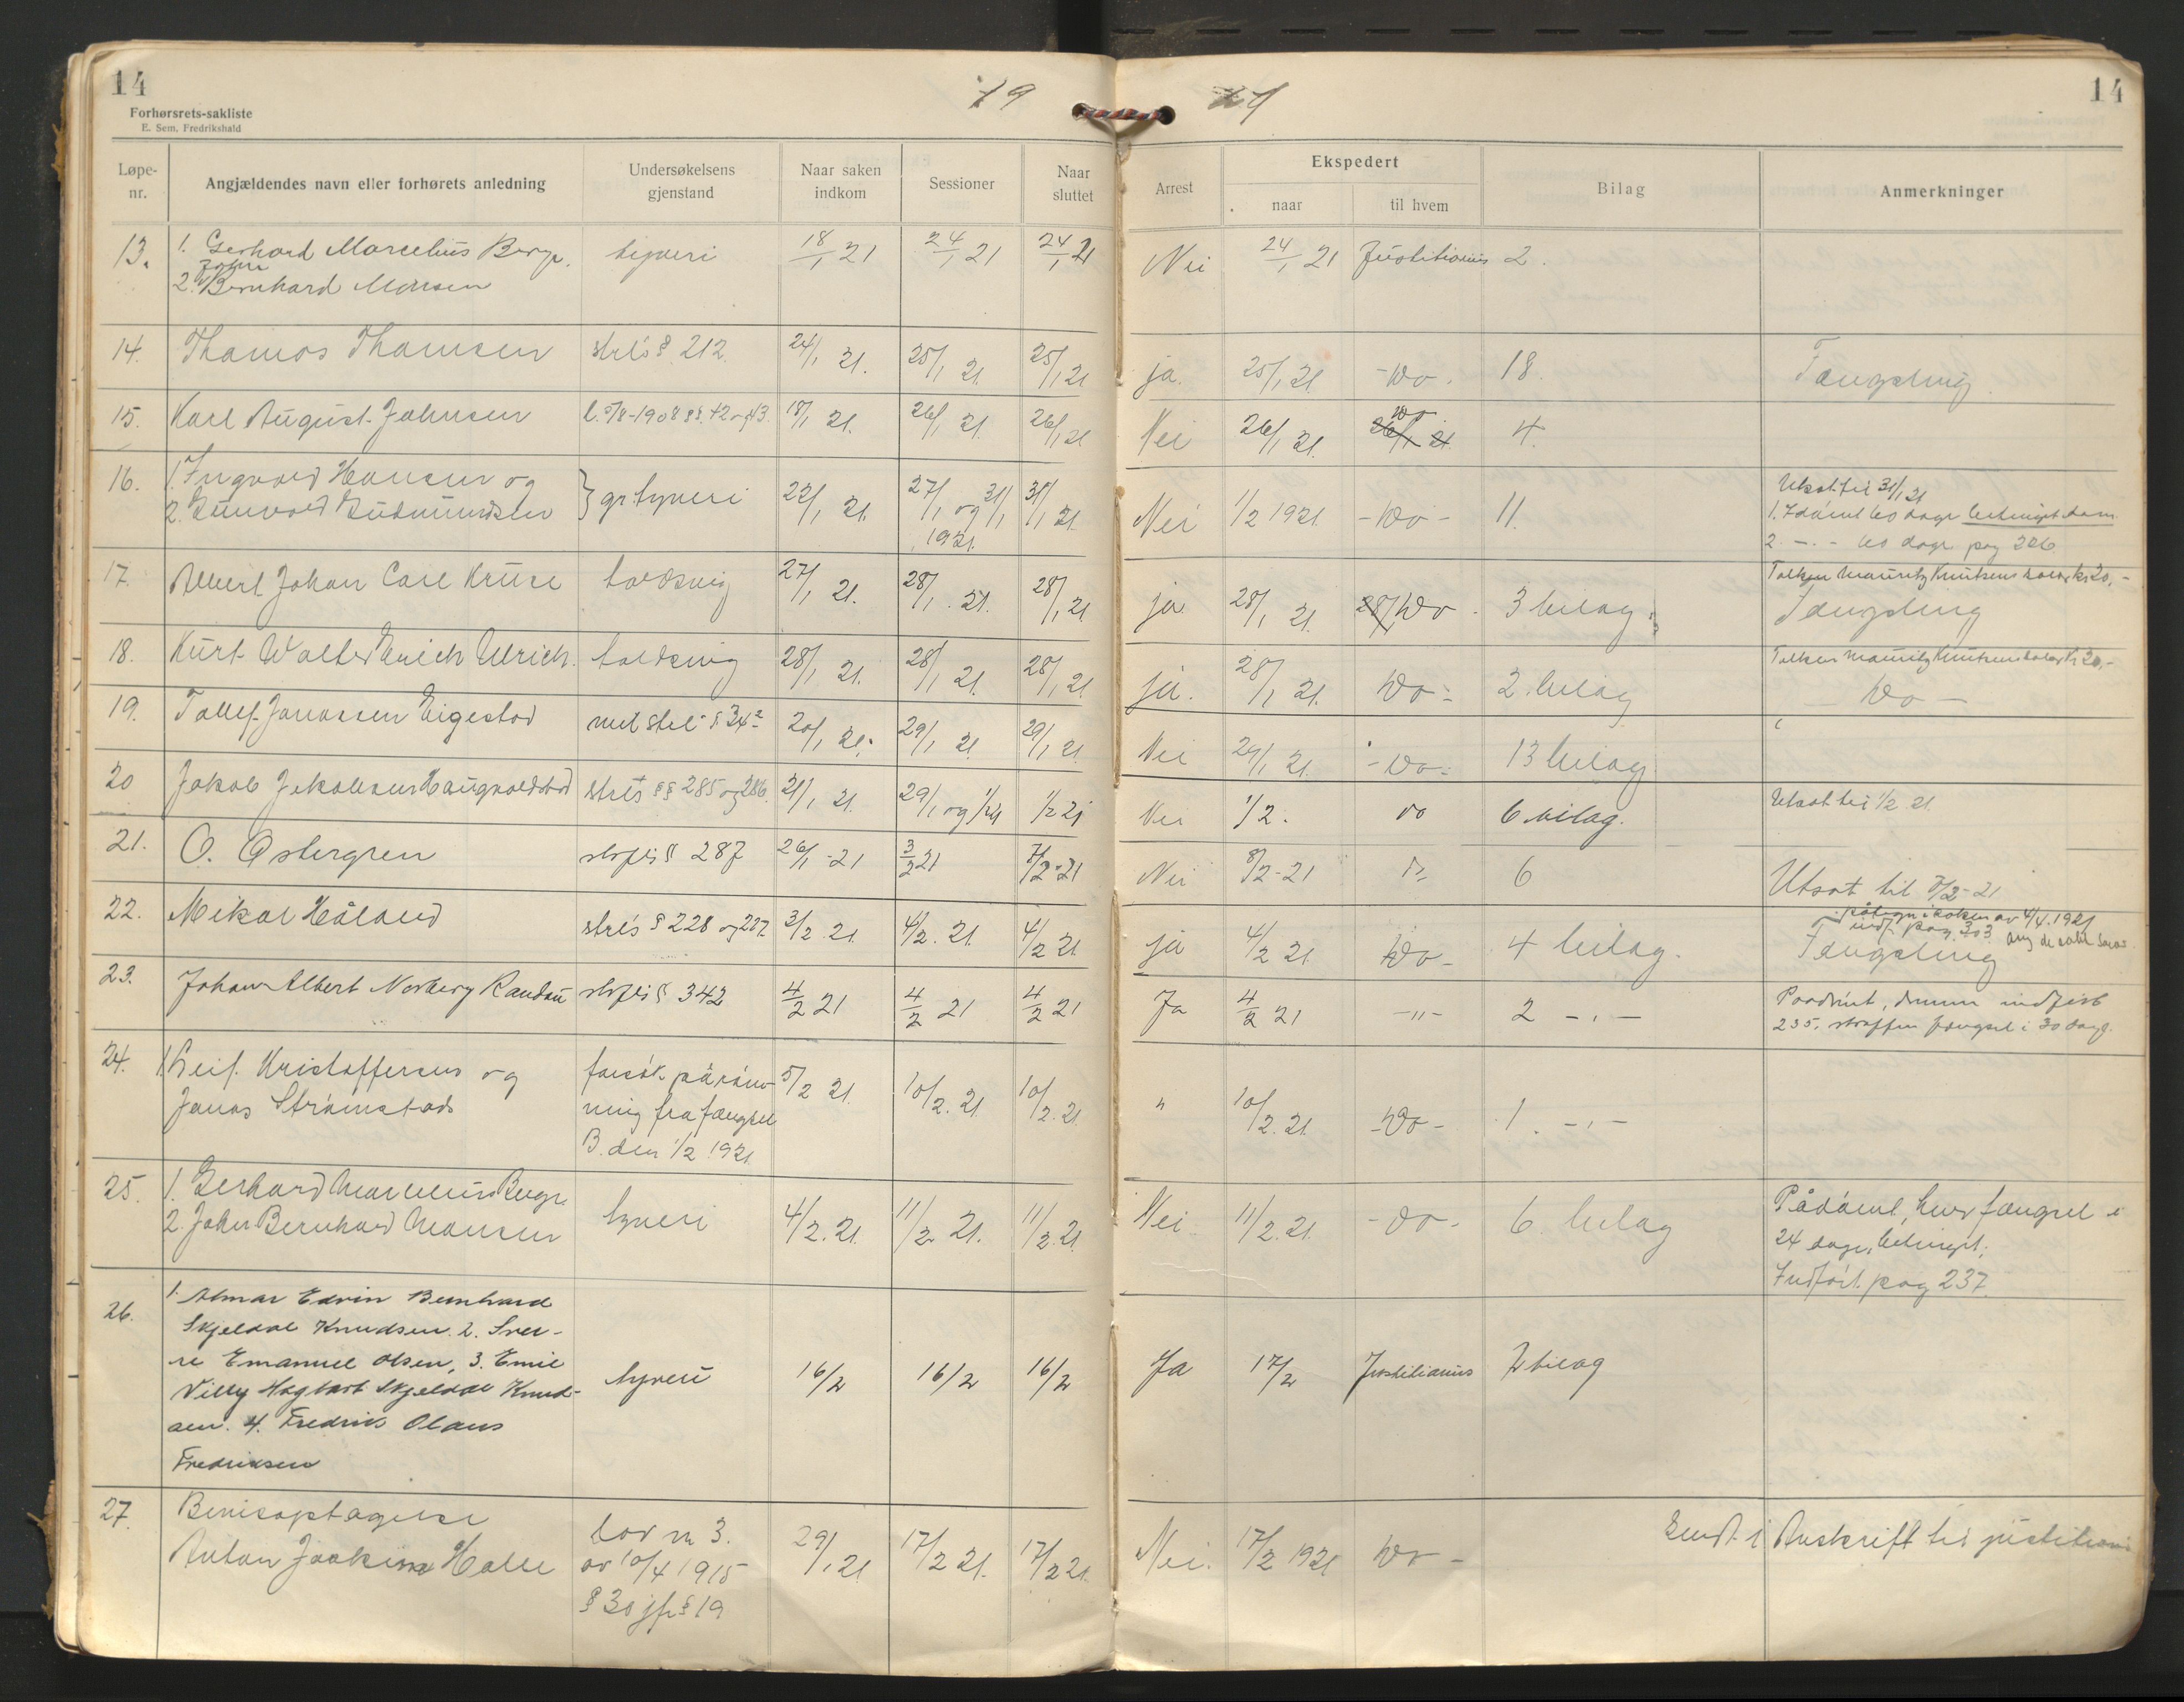 14
Forhørsrets-sakliste
E. Sem, Fredrikshald
19 21
14
Løpe-nr. Angjældendes navn eller forhørets anledning Undersøkelsens gjenstand Naar saken indkom Sessioner Naar sluttet Arrest Ekspedert naar til hvem Bilag Anmerkninger
13. 1. Gerhard Marcelius Berge. tyveri 18/1 21 24/1 21 24/1 21 Nei 24/1 21 Justitiarius 2.
2. John Bernhard Monsen
14. Thomas Thomsen strls § 212. 24/1 21. 25/1 21. 25/1 21 ja. 25/1 21 -Do-. 18. Fængsling
15. Karl August Johnsen l. 5/8-1908 §§ 42 og 43. 18/1 21. 26/1 21. 26/1 21 Nei 26/1 21. Do 4.
16. 1. Ingvald Hansen og
2. Gunvald Gudmundsen } gr. tyveri 22/1 21. 27/1 og 31/1 1921. 31/1 21. Nei 1/2 1921. -Do- 11.
Utsat til 31/1 21
1. Idømt 60 dage betinget dom.
2. -.- 60 dage pag 226.
17. Albert Johan Carl Kruse toldsvig 27/1 21. 28/1. 21. 28/1 21. ja 28/1 21. Do 3 bilag.
Tolken Mauritz Knutsens salær kr 20,-
Fængsling
18. Kurt Walter Erich Ulrich. toldsvig 28/1 21. 28/1 21. 28/1 21. ja. 28/1 21. Do- 2. bilag
Tolken Mauritz Knutsens salær kr 20,-
Do -
19. Tollef Jonassen Eigestad mil strl § 34² 20/1 21. 29/1 21. 29/1 21. Nei 29/1 21. -Do- 13 bilag.
20 Jakob Jakobsen Haugvaldstad strls §§ 285 og 286. 21/1 21. 29/1 og 1/2 21 1/2 21 Nei 1/2. do 6 bilag. Utsat til 1/2 21.
21. O. Østergren strfls § 287 26/1-21 3/2 21 7/2-21 Nei 8/2-21 6 Utsat til 7/2-21
22. Mikal Håland strls § 228 og 227. 3/2 21. 4/2. 21. 4/2 21. ja 4/2 21 Do- 4 bilag.
påtegn i boken av 4/4. 1921
indf. pag. 303
Fængsling
23. Johan Albert Norberg Randau strfls § 342 4/2 21 4/2 21 4/2 21 Ja 4/2 21 -"- 2 -.-
Paadømt, dommen indført
235. straffen fængsel i 30 dage.
24. 1. Leif Kristoffersen og
Jonas Strømstad forsøk på rømning fra fængsel B. den 1/2 1921. 5/2 21. 10/2. 21. 10/2. 21. " 10/2. 21. -Do- 1. -.-
25. 1. Gerhard Marcelius Berge
2. John Bernhard Monsen tyveri 4/2. 21. 11/2 21. 11/2. 21. Nei. 11/2. 21. -do- 6 bilag
Pådømt, hver fængsel i
24 dage, betinget.
Indført pag 237.
26. 1. Almar Edvin Bernhard
Skjeldal Knudsen. 2. Sver-
re Emanuel Olsen, 3. Emil
Villy Hagbart Skjeldal Knud-
sen. 4. Fredrik Olaus
Fredriksen tyveri 16/2 16/2 16/2 Ja 17/2 Justitiarius 2 bilag
27. Bevisoptagelse
Anton Joakim Halle lov nr 3. av 10/4 1915 § 30 jfr § 19 29/1 21 17/2 21. 17/2 21. Nei. 17/2 1921 Do- Sendt i Avskrift til justitiarius